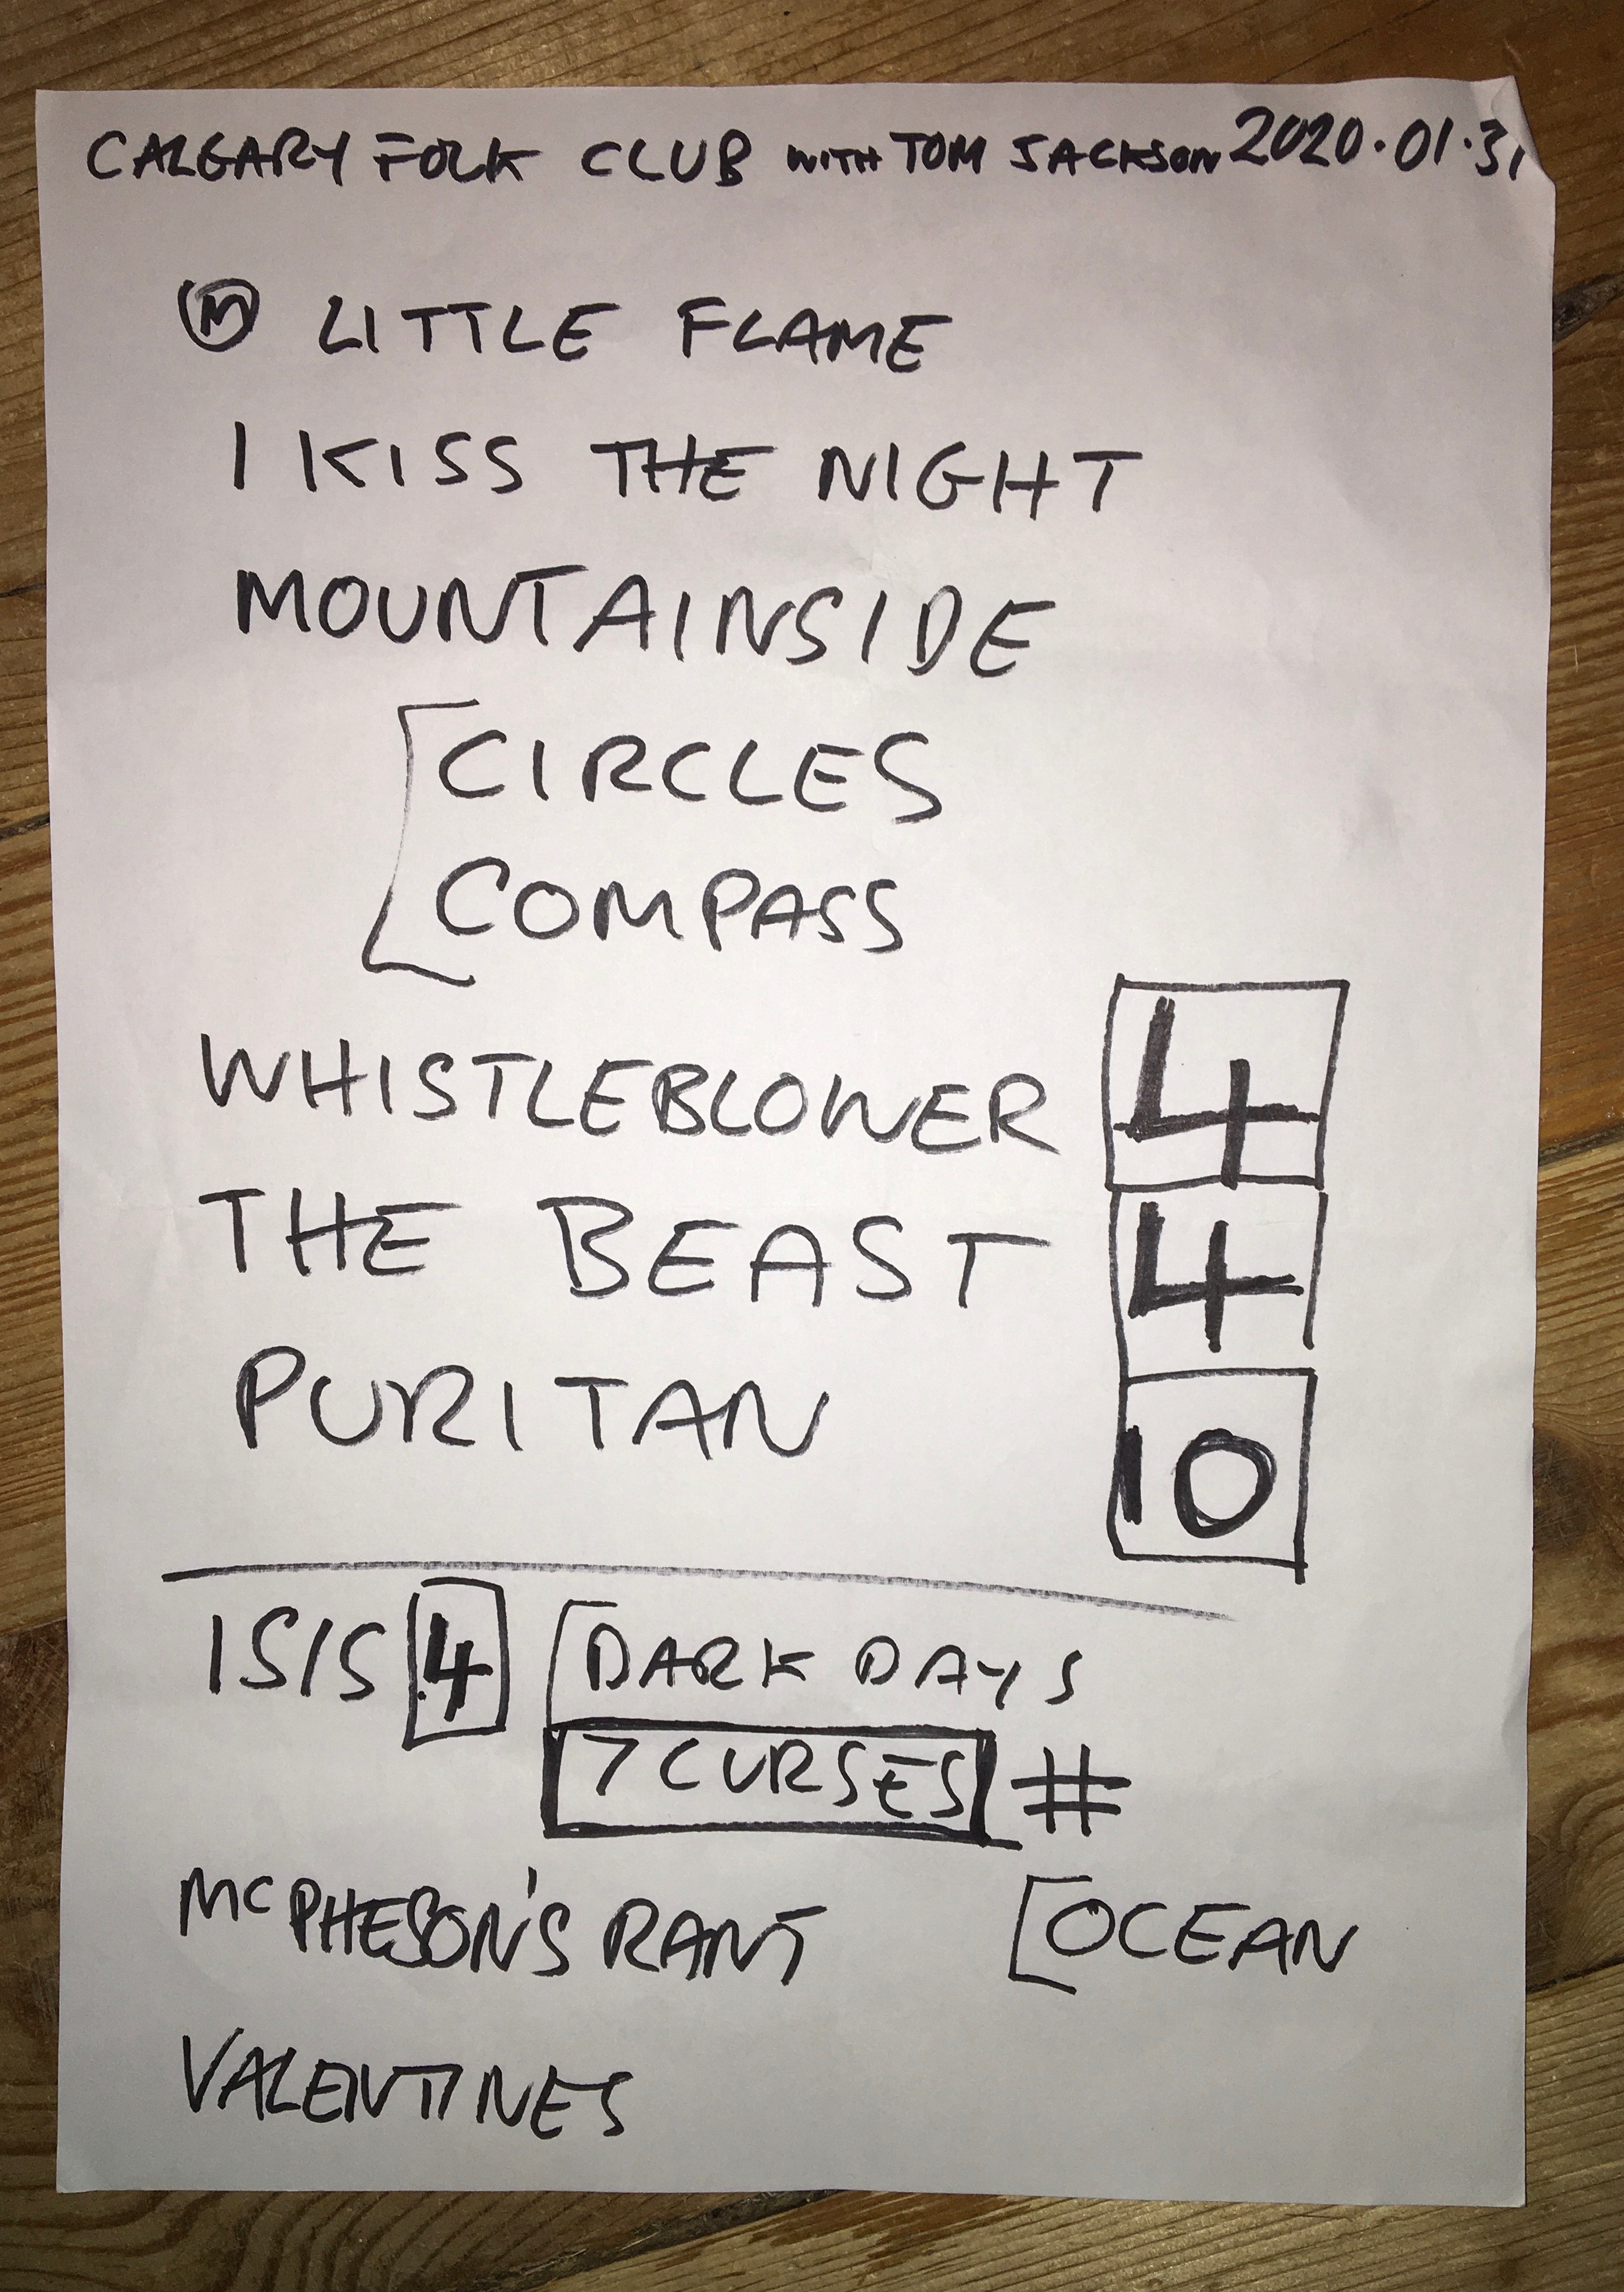 CALGARY FOLK CLUB WITH TOM JACKSON 2020.01.31
M LITTLE FLAME
I KISS THE NIGHT
MOUNTAINSIDE
[CIRCLES
COMPASS
WHISTLEBLOWER 4
THE BEAST 4
PURITAN 10
ISIS 4 [DARK DAYS
7 CURSES #
MCPHESON'S RANT [OCEAN
VALENTINES